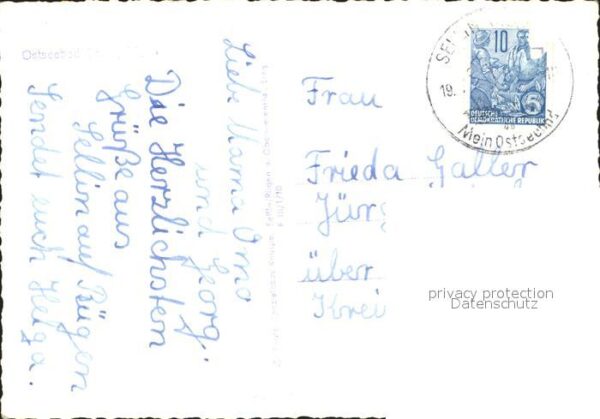 Ostseebad
Liebe Mama Omo
und Georg.
Die Herzlichsten
Grüße aus
Sellin auf Rügen
Sendet euch Helga.
Frau
Frieda Galler
Jürg
über
Krei
10
DEUTSCHE
DEMOKRATISCHE REPUBLIK
19.
Mein Ostseebad
privacy protection
Datenschutz